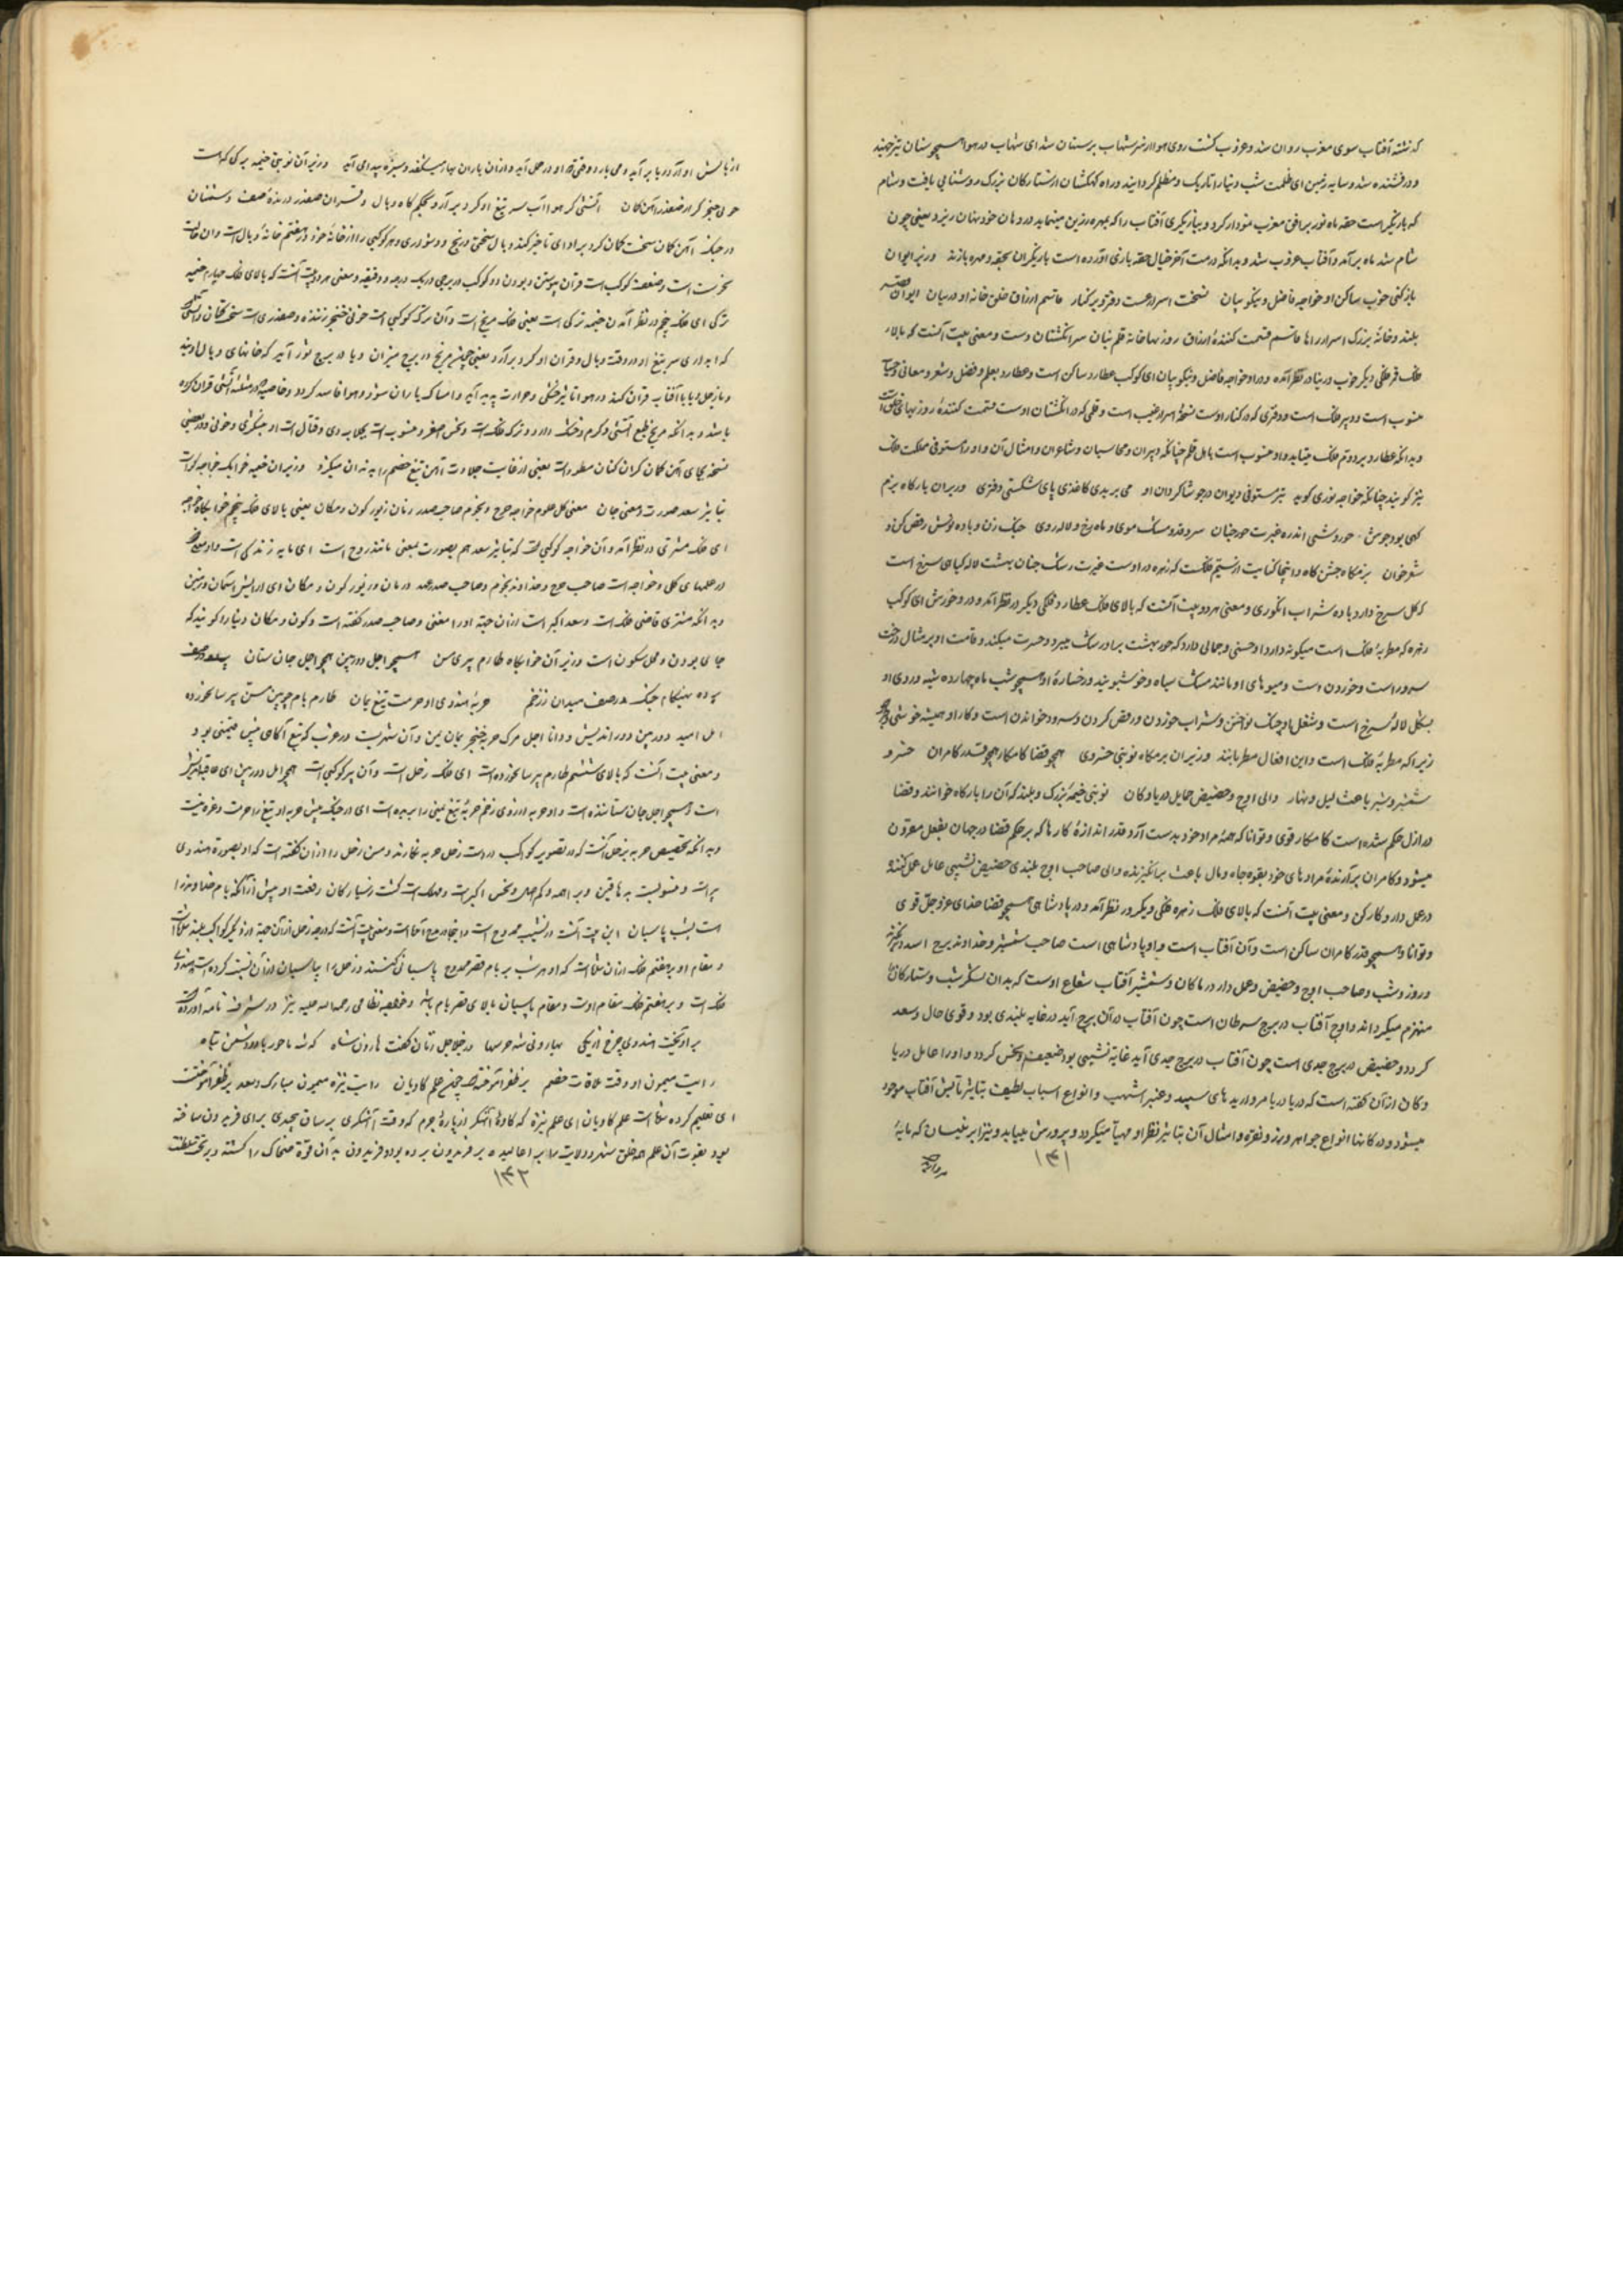 که نشته آفتاب سوی مغرب روان شد و غروب گشت روی هوا از شهاب پرستان شد ای شهاب در هوا همچو سنان تیز
و درفشنده شد و سایه زمین ای ظلمت شب دنیا را تاریک و مظلم گردانید و راه کهکشان از ستارگان بزرگ روشنایی یافت و شام
که بازیگر است حقه ماه نور بر افق مغرب نمودار کرد و ببازیگری آفتاب را که مهره زرین مینماید در دهان خود پنهان یعنی چون
شام شد ماه برآمد و آفتاب غروب شد و بدانکه درمت آخر خیال حقه بازی آورده است بازیگران بحقه و مهره بازند وز بر ایوان
خوب ساکن او خواجه فاضل و نیکو بیان نسخت اسرار دست دفتر بر کنار قاسم ارزاق خلق خانه او در میان ایوان
بلند و خانه بزرگ اسرار رازها قاسم قسمت کننده ارزاق روزیها خامه قلم بنان سر انگشتان دست و معنی بیت آنست که بالای
فلک قمر فلکی دیگر خوب در بنا در نظر آمده و در او خواجه فاضل و نیکو بیان ای کوکب عطارد ساکن است و عطارد بعلم و فضل و شعر و معانی
منسوب است و دبیر فلک است و دفتری که در کنار اوست نسخه اسرار غیب است و قلمی که در انگشتان اوست قسمت کننده روزیهای خلق
و بدانکه عطارد بر دوم فلک میتابد و او منسوب است باهل قلم چنانکه دبیران و محاسبان و شاعران و امثال آن و او را مستوفی مملکت فلک
نیز گویند چنانکه خواجه گوید تیر مستوفی دیوان در جو شاگردان او می بریدی کاغذی پای شکستی دفتری وز بر آن بارگاه بزم
حوروشی اندرو غیرت حور جنان سرو قد و مشک موی و ماه رخ و لاله روی چنگ زن و باده نوش رقص کن و
شعر خوان بزمگاه جشن گاه و اینجا کنایت از سیم فلک است که زهره در اوست غیرت رشک جنان بهشت لاله گیاهی سرخ است
که گل سرخ دارد باده شراب انگوری و معنی هر دو بیت آنست که بالای فلک عطارد فلکی دیگر در نظر آمد و در او خوروش ای کوکب
زهره که مطربه فلک است میگوید دارد او حسنی و جمالی دارد که حور بهشت بر او رشک میبرد و حسرت میکند و قامت او بر مثال درخت
سرو راست و خوردن است و میوهای او مانند مشک سیاه و خوشبویند و رخساره او همچو شب ماه چهارده شبه و روی او
بشکل لاله سرخ است و شغل او چنگ نواختن و شراب خوردن و رقص کردن و سرود خواندن است و کار او همیشه خوشی
زیرا که مطربه فلک است و این افعال مطربانند وز بر آن بزمگاه نوبتی خسروی همچو قضا کامکار همچو قدر کامران خسرو
شمشیر و شیر باعث لیل و نهار والی اوج و حضیض حمایل دریا و کان نوبتی خیمه بزرگ و بلند که آن را بارگاه خوانند و قضا
در ازل حکم شده است کامکار قوی و توانا که همه مراد خود بدست آرد و قدر اندازه کارها که بر حکم قضا در جهان بفعل مقرون
میشود و کامران برآرنده مرادهای خود بقوه جاه و مال باعث برانگیزنده والی صاحب اوج بلندی حضیض نشیبی عامل عمل کننده
در عمل دار و کار کن و معنی بیت آنست که بالای فلک زهره فلکی دیگر در نظر آمد و در او پادشاهی همچو قضا خدای عز و جل قوی
و توانا و همچو قدر کامران ساکن است و آن آفتاب است و او پادشاهی است صاحب شمشیر و خداوند برج اسد و
و روز و شب و صاحب اوج و حضیض و عمل دار دریا و کان و شمشیر آفتاب شعاع اوست که بدان لشکر شب و ستارگان
منهزم میگرداند و اوج آفتاب در برج سرطان است چون آفتاب در آن برج آید در غایه بلندی بود و قوی حال و سعد
گردد و حضیض در برج جدی است چون آفتاب در برج جدی آید غایه نشیبی بود و ضعیف و نحس گردد و او را عامل دریا
و کان از آن گفته است که در دریا مرواریدهای سپید و عنبر اشهب و انواع اسباب لطیف بتاثیر تابش آفتاب موجود
میشود و در کانها انواع جواهر و زر و نقره و امثال آن بتاثیر نظر او مهیا میگردد و پرورش مییابد و نیز ابر نیسان که مایه
۱۴۱
از تابش او از دریا برآید و می بارد وقتی که او در حمل آید و از آن باران بهار میشکفد و سبزه پیدا می آید وز بر آن نوبتی خیمه ترکی که است
خونی خنجر گزار صفدر آهن کمان آتشی گر هوا آب سر تیغ او گرد برآرد بحکم گاه وبال و قران صفدر درنده صف دشمنان
در جنگ آهن کمان سخت کمان گرد برآرد ای ناچیز کند وبال سختی و رنج و دشواری و هر کوکبی را از خانه خود در هفتم خانه وبال است و آن حالت
نحوست است و ضعف کوکب است قران پیوستن و بودن دو کوکب در برجی در یک درجه و دقیقه و معنی هر دو بیت آنست که بالای فلک چهارم خیمه
ترکی ای فلک پنجم در نظر آمد و آن خیمه ترکی است یعنی فلک مریخ است و آن ترک کوکبی است خونی خنجر زننده و صفدری است سخت کمان و آتشی
که ابداری سر تیغ او در وقت وبال و قران او گرد برآرد یعنی چون مریخ در برج میزان و یا در برج ثور آید که خانهای وبال اویند
و با زحل و یا با آفتاب قران کند در هوا تاثیر خشکی و حرارت پدید آید و امساک باران شود و هوا فاسد گردد و خاصه در مثلثه آتشی قران کرده
باشد و بدانکه مریخ بطبع آتشی و گرم و خشک دارد و ترک فلک است و نحس اصغر و منسوب است بجلادی و قتال است او لشکری و خونی و در بعضی
نسخه بجای آهن کمان گران کنان مسطور است یعنی از غایت جلادت آهن تیغ خصم را بدندان میگیرد وز بر آن خیمه خوابگه خواجه کو است
بتاثیر سعد صورت و معنی جان معنی کل علوم خواجه چرخ و نجوم صاحب صدر زمان زیور کون و مکان یعنی بالای فلک پنجم خوابگاه خواجه
ای فلک مشتری در نظر آمد و آن خواجه کوکبی است که بتاثیر سعد هم بصورت بمعنی مانند روح است ای مایه زندگی است و او معنی
در علمهای کلی و خواجه است صاحب چرخ و خداوند نجوم و صاحب صدر عهد زمان و زیور کون و مکان ای آرایش آسمان و زمین
و بدانکه مشتری قاضی فلک است و سعد اکبر است از آن جهة او را معنی و صاحب صدر گفته است و کون و مکان دنیا را گویند که
جای بودن و محل سکون است وز بر آن خوابگاه طارم پیری مسن همچو اجل دوربین همچو اجل جان ستان
بوده بهنگام جنگ در صف میدان ز زخم حربه هندوی او حرمت تیغ یمان طارم بام چوبین مسن پیر سالخورده
امل امید دوربین دوراندیش و دانا اجل مرگ حربه خنجر یمان یمن و آن شهریست در عرب که تیغ آنجای بیش قیمتی بود
و معنی بیت آنست که بالای ششم طارم پیر سالخورده است ای فلک زحل است و آن پیر کوکبی است همچو امل دوربین ای عاقبت اندیش
است و همچو اجل جان ستاننده است و او حربه دارد و ی زخم حربه تیغ یمنی را بریده است ای در جنگ پیش حربه او تیغ را حرمت و عزه نیست
و بدانکه تخصیص حربه بزحل آنست که در تصویر کواکب در دست زحل حربه نگارند و مسن زحل را از آن گفته است که او بصورة هندوی
پیر است و منسوب است بدهاقین و براهمه و نحس اکبر است و مهلک است گشت ز سیارگان رفعت او بیش از آنک بام خداوند را
است بشب پاسبان این بیت در تشبیب ممدوح است و معنی بیت آنست که درجه زحل از آن جهة از دیگر کواکب بلند
و مقام او بر هفتم فلک از آن شده است که او هر شب بر بام قصر ممدوح پاسبانی کند و زحل را بپاسبان از آن نسبت کرده است که هندوی
فلک است و بر هفتم فلک مقام اوست و مقام پاسبان بالای قصر بام باشد و خواجه نظامی رحمة الله علیه نیز در شرفنامه آورده
برآویخت هندوی چرخ از یکی بهارونی شه جرسها در جلاجل زنان گفت هارون شاه که شه تاجور باد و دشمن تباه
رایت میمون او وقت ملاقات خصم بر ظفر آموخته چنین علم کاویان رایت نیزه میمون مبارک و سعد بر ظفر آموخته است
ای تعلیم کرده شده است علم کاویان ای علم نیزه که کاوه آهنگر از پاره چرم که وقت آهنگری بر ساق بپیچدی برای فریدون ساخته
بود بقوت آن علم همه خلق شهر و ولایت را بر اعانت بر فریدون برده بود و فریدون به آن قوه ضحاک را کشته و بر تخت سلطنت
۱۴۲